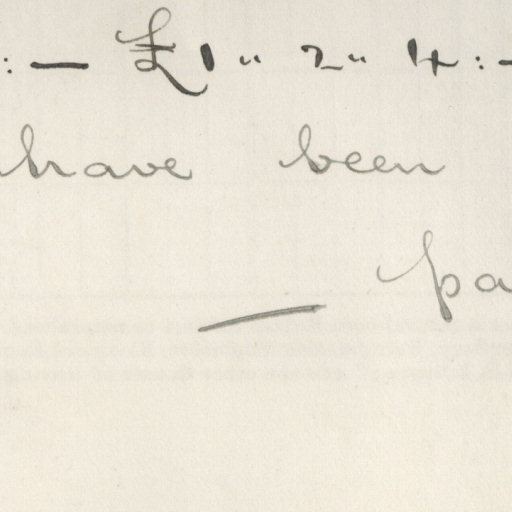 :— £1 " 2 " 4 :—
have been
pa